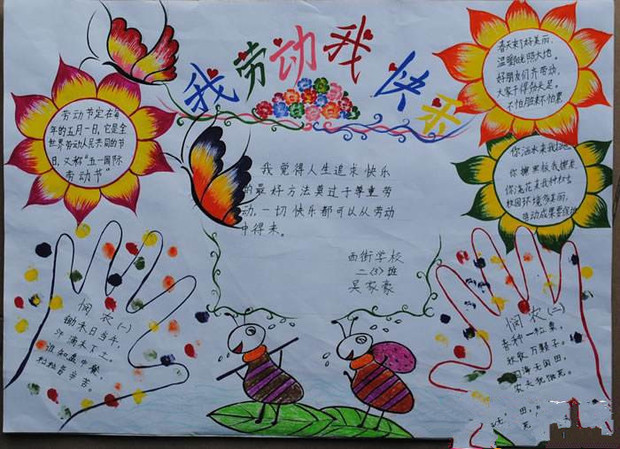 我劳动我快乐
劳动节定在每
年的五月一日,它是全
世界劳动人民共同的节
日,又称"五一国际
劳动节"
春天来了好美丽,
温暖阳光照大地。
好朋友们齐劳动,
不怕脏来不怕累
我觉得人生追求快乐
的最好方法莫过于尊重劳
动,一切快乐都可以从劳动
中得来。
西街学校
二(3)班
吴家豪
你擦黑板我摆桌
校园环境多美丽,
劳动成果要保护
悯农(一)
锄禾日当午,
汗滴禾下土。
谁知盘中餐
粒粒皆辛苦。
悯农(二)
春种一粒粟,
秋收万颗子。
四海无闲田,
农夫犹饿死。